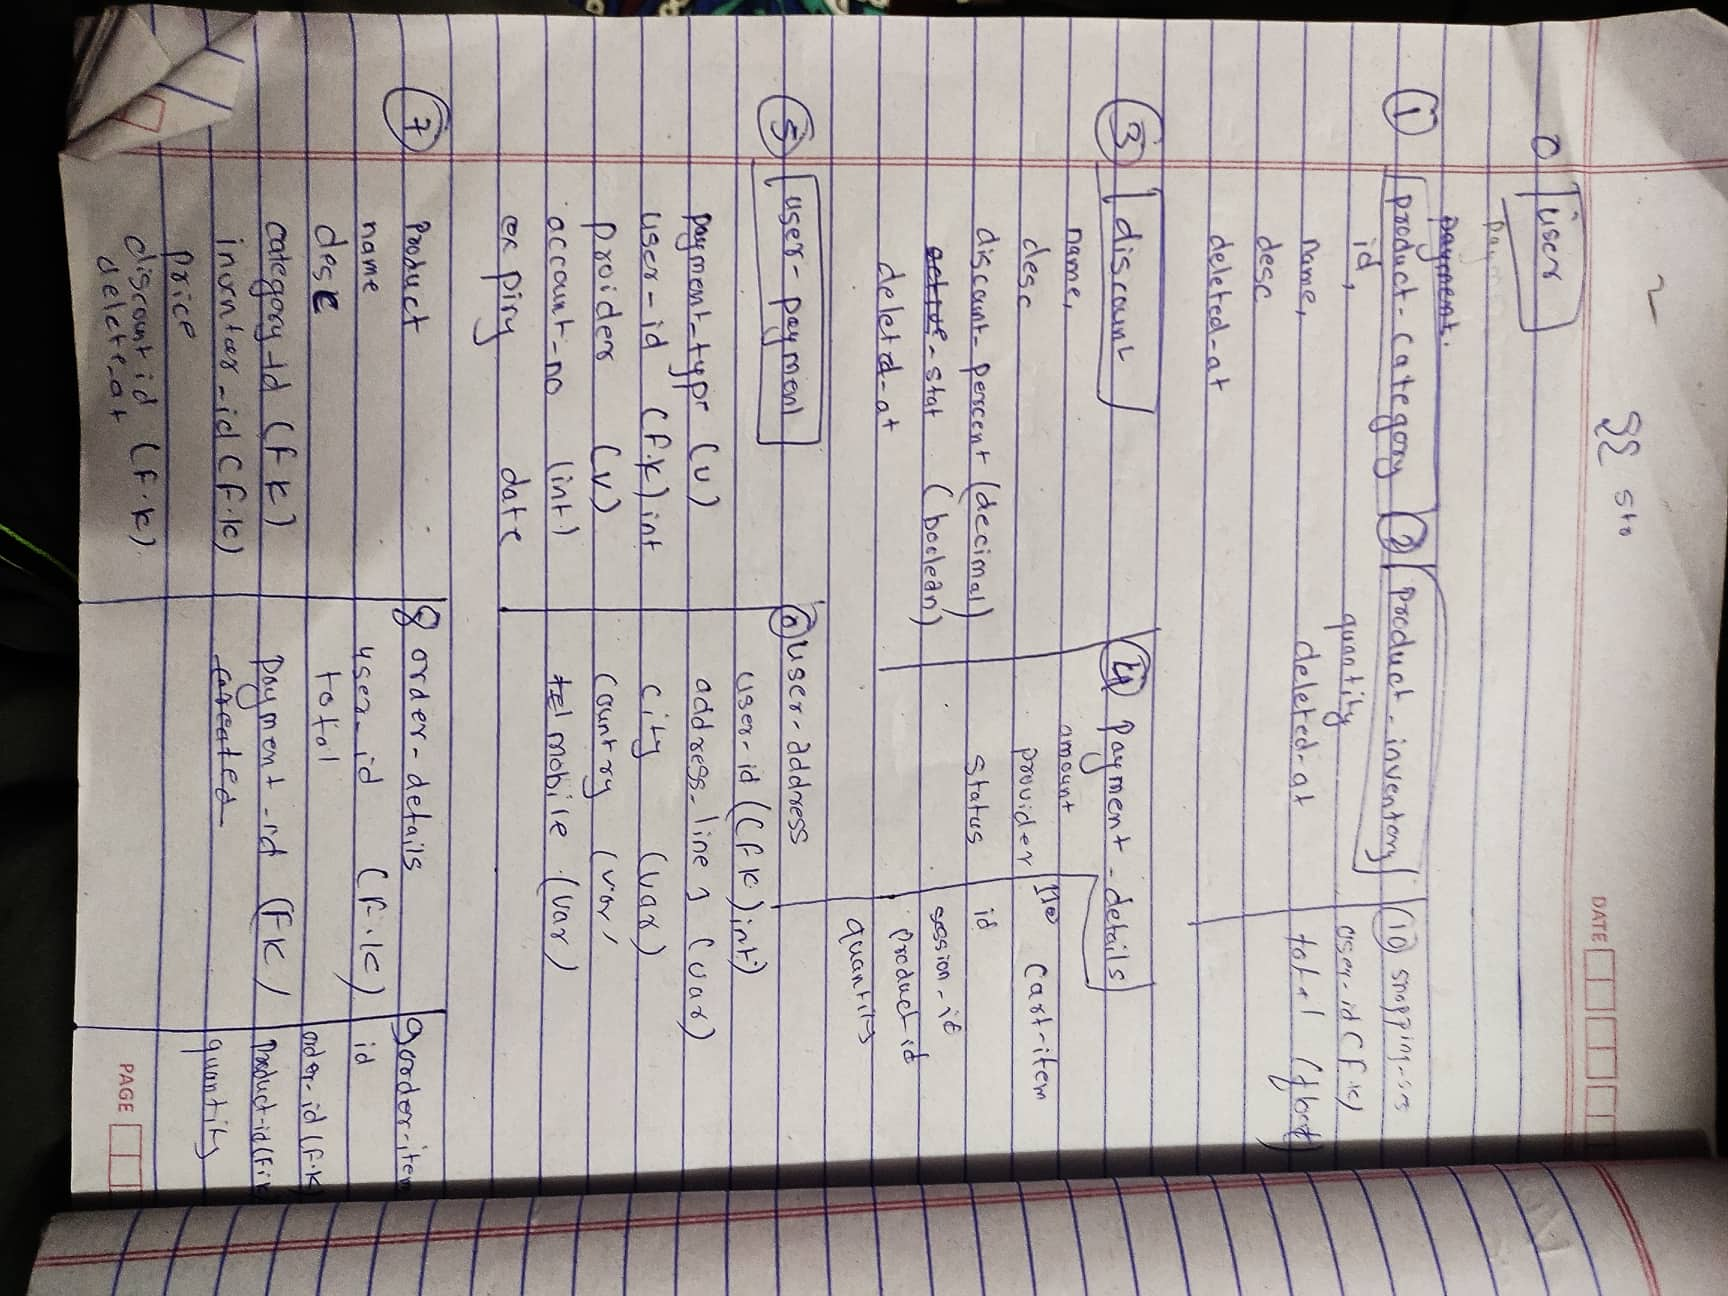 DATE
0 user
payment.
① product-category
id,
name,
desc
deleted-at
② product-inventory
quantity
deleted-at
⑩
user-id (F.K)
total (float)
③ discount
name,
desc
discount-percent (decimal)
active-stat (boolean)
deleted-at
④ payment-details
amount
provider
status
cart-item
id
session-id
product id
quantity
⑤ user-payment
payment-type (v)
user-id (f.k) int
proider (v)
account-no (int)
expiry date
⑥ user-address
user-id (f k) int
address-line 1 (var)
city (var)
country (var)
tel mobile (var)
⑦ Product
name
desc
category Id (f k)
inventory-id (f.k)
price
discount id (f.k)
delete-at
8 order-details
user-id (f.k)
total
payment-id (fk)
created
9 order-item
id
order-id (f.k)
product-id (f.k
quantity
PAGE